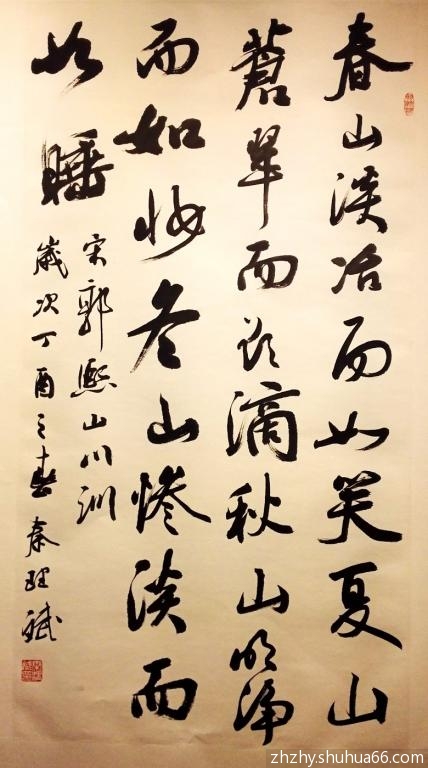 春山淡冶而如笑夏山
蒼翠而欲滴秋山明净
而如妆冬山惨淡而
如睡
宋郭熙山川訓
歲次丁酉之春秦理斌
zhzhy.shuhua66.com